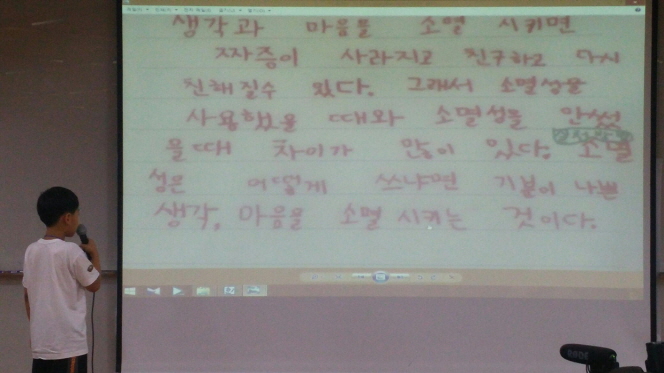 생각과 마음을 소멸 시키면
짜증이 사라지고 친구하고 다시
친해 질수 있다. 그래서 소멸성을
사용했을 때와 소멸성을 안썼
을때 차이가 많이 있다. 소멸
성은 어떻게 쓰냐면 기분이 나쁜
생각, 마음을 소멸 시키는 것이다.